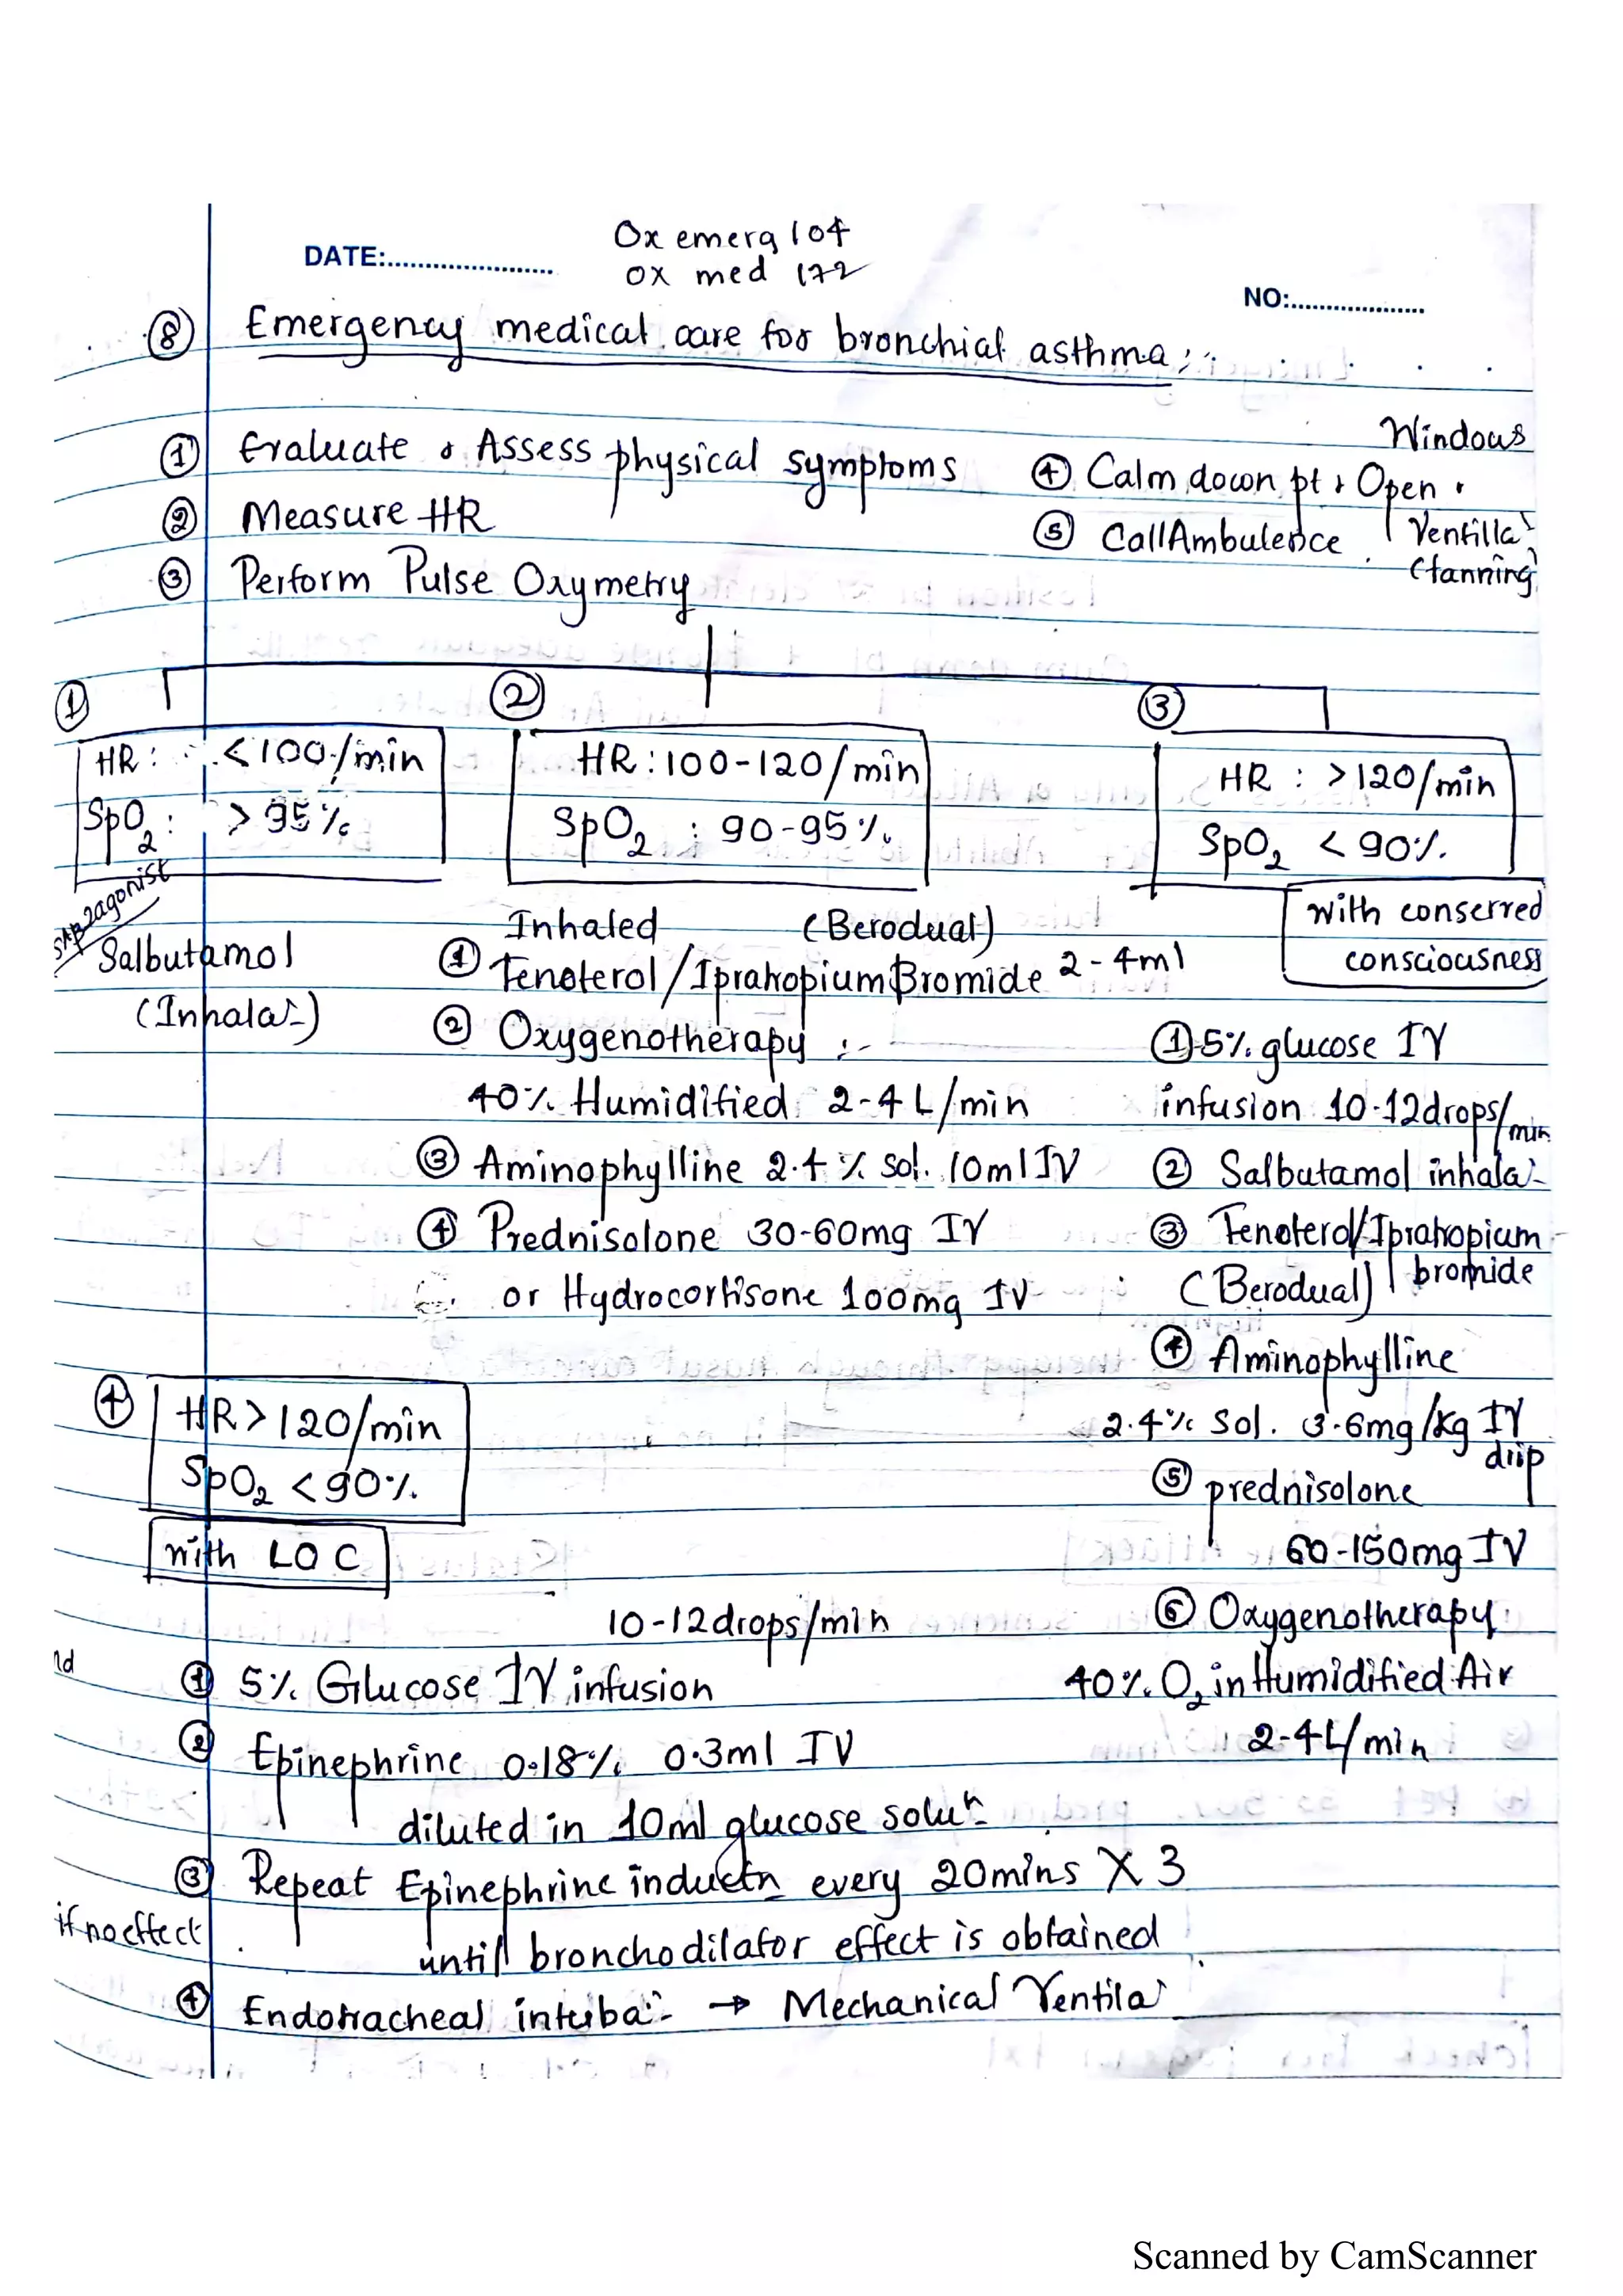 Ox emerg 104
DATE:......................
ox med 172
NO:..................
⑧ Emergency medical care for bronchial asthma :-
① Evaluate & Assess physical symptoms
② Measure HR
③ Perform Pulse Oxymetry
Windows
④ Calm down pt & Open
⑤ Call Ambulence
Ventilla
(fanning)
①
HR : <100/min
SpO₂ : >95%
SAβ2agonist
Salbutamol
(Inhala-)
②
HR : 100-120/min
SpO₂ : 90-95%
Inhaled (Berodual)
① Fenoterol/Ipratropium Bromide 2-4ml
② Oxygenotherapy :-
40% Humidified 2-4 L/min
③ Aminophylline 2.4% sol. 10ml IV
④ Prednisolone 30-60mg IV
or Hydrocortisone 100mg IV
③
HR : >120/min
SpO₂ <90%
with conserred
consciousness
① 5% glucose IV
infusion 10-12drops/min
② Salbutamol inhala-
③ Fenoterol/Ipratropium
bromide
(Berodual)
④ Aminophylline
2.4% sol. 3-6mg/kg IV
drip
⑤ prednisolone
60-150mg IV
⑥ Oxygenotherapy
40% O₂ in Humidified Air
2-4L/min
④
HR >120/min
SpO₂ <90%
with LOC
10-12drops/min
① 5% Glucose IV infusion
② Epinephrine 0.18% 0.3ml IV
diluted in 10ml glasses soluⁿ
③ Repeat Epinephrine inductn every 20mins X 3
until bronchodilator effect is obtained
if no effect
④ Endotracheal intuba- → Mechanical Ventila
Scanned by CamScanner